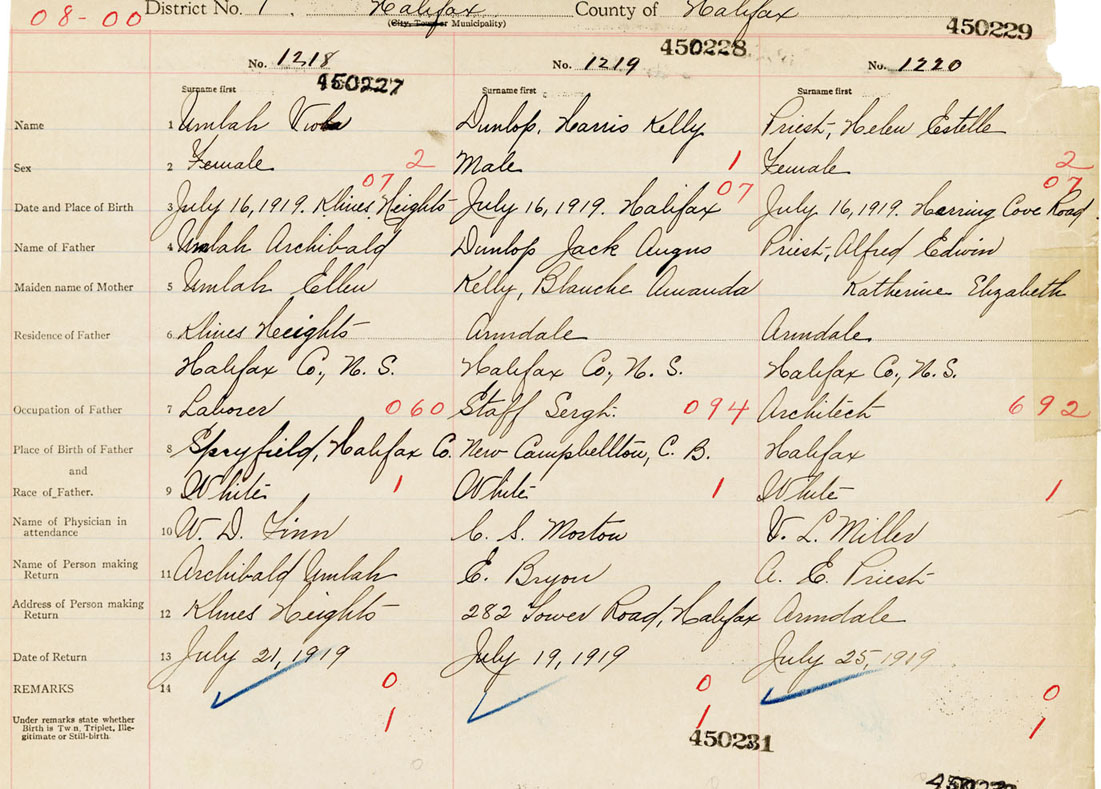 08-00 District No. 1. Halifax County of Halifax
(City, Town or Municipality)
450229
450228
No. 1218 No. 1219 No. 1220
450227
Surname first Surname first Surname first
Name 1 Umlah Viola Dunlop, Harris Kelly Priest, Helen Estelle
Sex 2 Female 2 Male 1 Female 2
07 07 07
Date and Place of Birth 3 July 16, 1919. Klines Heights July 16, 1919. Halifax July 16, 1919. Herring Cove Road.
Name of Father 4 Umlah Archibald Dunlop Jack Angus Priest, Alfred Edwin
Maiden name of Mother 5 Umlah Ellen Kelly, Blanche Amanda Katherine Elizabeth
Residence of Father 6 Klines Heights Armdale Armdale
Halifax Co., N. S. Halifax Co., N. S. Halifax Co., N.S.
Occupation of Father 7 Laborer 060 Staff Sergt. 094 Architect 692
Place of Birth of Father 8 Spryfield, Halifax Co. New Campbellton, C. B. Halifax
and
Race of Father. 9 White 1 White 1 White 1
Name of Physician in
attendance 10 W. D. Finn C. S. Morton V. L. Miller
Name of Person making
Return 11 Archibald Umlah E. Bryon A. E. Priest
Address of Person making
Return 12 Klines Heights 282 Tower Road, Halifax Armdale
Date of Return 13 July 21, 1919 July 19, 1919 July 25, 1919
REMARKS 14 0 0 0
Under remarks state whether
Birth is Twn, Triplet, Ille-
gitimate or Still-birth. 1 1 1
450231